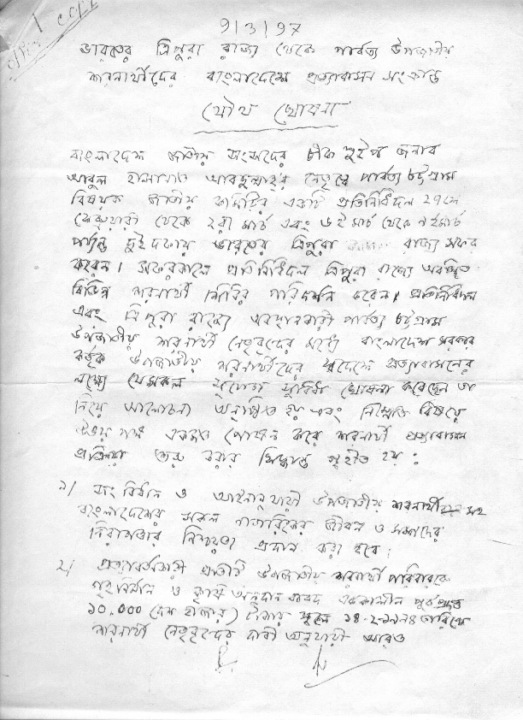 9/3/97
ভারতের ত্রিপুরা রাজ্য থেকে পার্বত্য উপজাতীয়
শরনার্থীদের বাংলাদেশে প্রত্যাবাসন সংক্রান্ত
যৌথ ঘোষনা
বাংলাদেশ জাতীয় সংসদের চীফ হুইপ জনাব
আবুল হাসানাত আবদুল্লাহর নেতৃত্বে পার্বত্য চট্টগ্রাম
বিষয়ক জাতীয় কমিটির একটি প্রতিনিধিদল ২৭শে
ফেব্রুয়ারী থেকে ২রা মার্চ এবং ৬ই মার্চ থেকে ৯ই মার্চ
পর্যন্ত দুই দফায় ভারতের ত্রিপুরা রাজ্য সফর
করেন। সফরকালে প্রতিনিধিদল ত্রিপুরা রাজ্যে অবস্থিত
বিভিন্ন শরনার্থী শিবির পরিদর্শন করেন। প্রতিনিধিদল
এবং ত্রিপুরা রাজ্যে অবস্থানকারী পার্বত্য চট্টগ্রাম
উপজাতীয় শরনার্থী নেতৃবৃন্দের মধ্যে বাংলাদেশ সরকার
কর্তৃক উপজাতীয় শরনার্থীদের স্বদেশে প্রত্যাবাসনের
লক্ষ্যে যেসকল সুযোগ সুবিধা ঘোষনা করেছেন তা
নিয়ে আলোচনা অনুষ্ঠিত হয় এবং নিম্নোক্ত বিষয়ে
উভয় পক্ষ একমত পোষন করে শরনার্থী প্রত্যাবাসন
প্রক্রিয়া শুরু করার সিদ্ধান্ত গৃহীত হয়:
১/ সংবিধান ও আইনানুযায়ী উপজাতীয় শরনার্থী সহ
বাংলাদেশের সকল নাগরিকের জীবন ও সম্পদের
নিরাপত্তার নিশ্চয়তা প্রদান করা হবে;
২/ প্রত্যাবর্তনকারী প্রতিটি উপজাতীয় শরনার্থী পরিবারকে
গৃহনির্মান ও কৃষি অনুদান বাবদ এককালীন পূর্ব প্রদত্ত
১০,০০০ (দশ হাজার) টাকার স্থলে তারিখে
শরনার্থী নেতৃবৃন্দের দাবী অনুযায়ী আরও